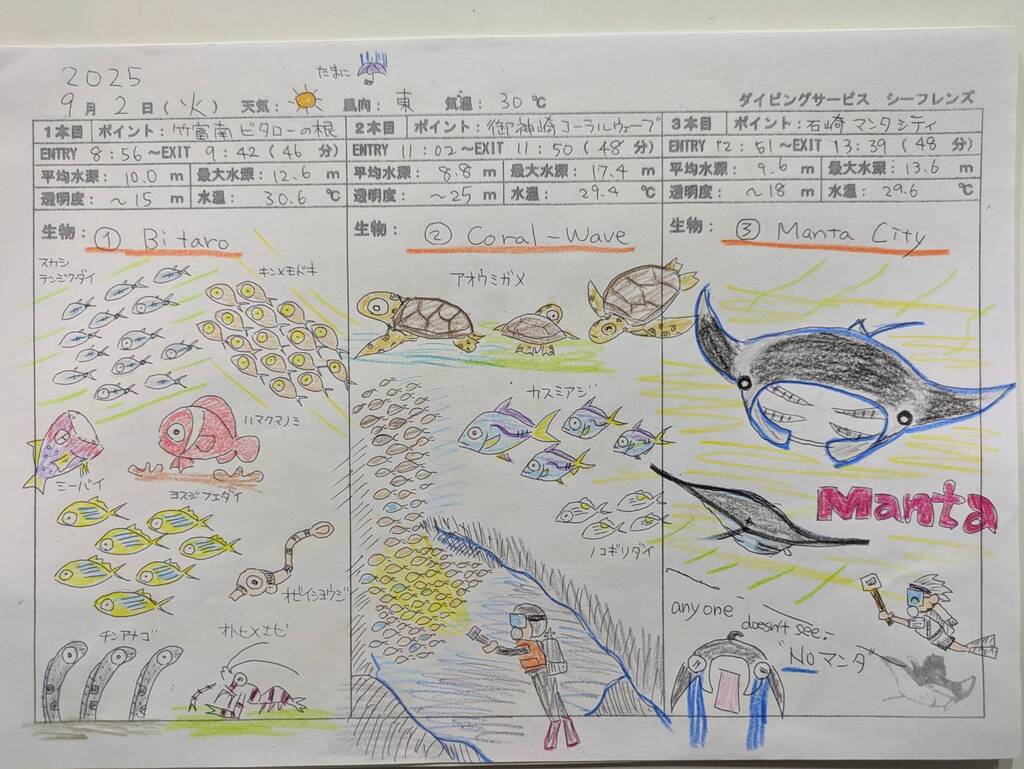 2025
たまに
9月2日(火) 天気: 風向: 東 気温: 30℃ ダイビングサービス シーフレンズ
1本目 ポイント: 竹富南 ビタローの根
ENTRY 8:56~EXIT 9:42(46分)
平均水深: 10.0m 最大水深: 12.6m
透明度: ~15m 水温: 30.6℃
生物: ① Bitaro
スカシ
テンジクダイ
キンメモドキ
ハマクマノミ
ミーバイ
ヨスジフエダイ
オビイシヨウジ
チンアナゴ
オトヒメエビ
2本目 ポイント: 御神崎 コーラルウェーブ
ENTRY 11:02~EXIT 11:50(48分)
平均水深: 8.8m 最大水深: 17.4m
透明度: ~25m 水温: 29.4℃
生物: ② Coral-Wave
アオウミガメ
カスミアジ
ノコギリダイ
3本目 ポイント: 石崎 マンタシティ
ENTRY 12:51~EXIT 13:39(48分)
平均水深: 9.6m 最大水深: 13.6m
透明度: ~18m 水温: 29.6℃
生物: ③ Manta City
Manta
anyone
doesn't see.
"Noマンタ"